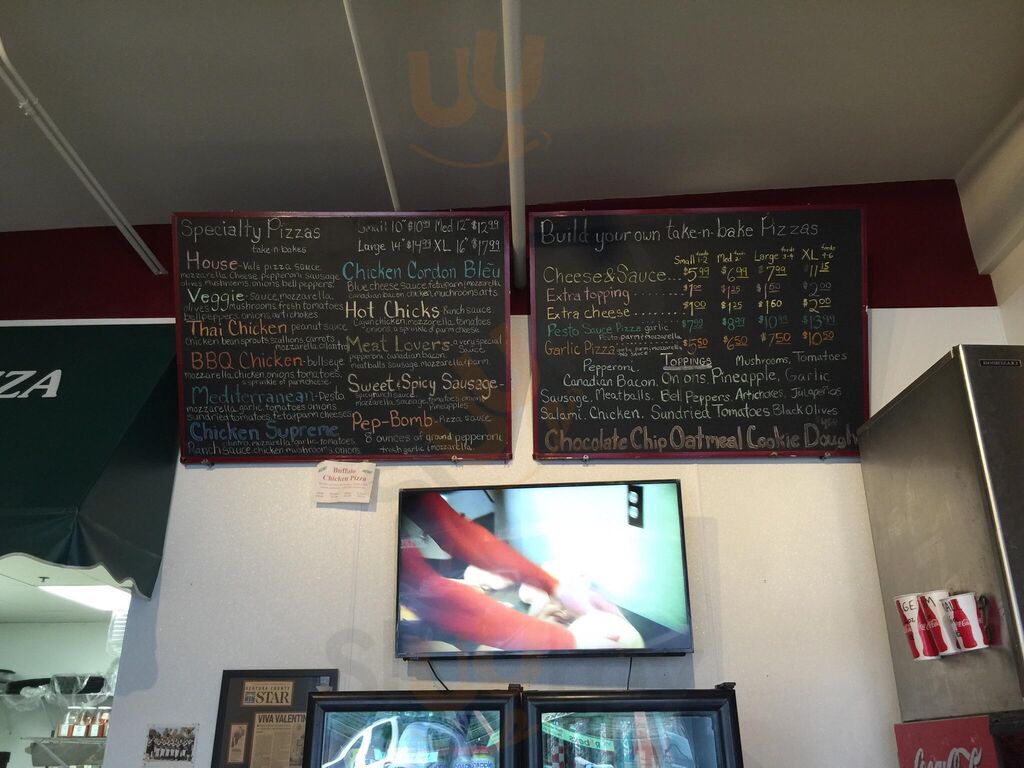 Specialty Pizzas
take-n-bakes
Small 10" $10.99 Med 12" $12.99
Large 14" $14.99 XL 16" $17.99
House-Vals pizza sauce
mozzarella cheese, pepperoni, sausage
olives, mushrooms, onions, bell peppers
Veggie-sauce, mozzarella
olives, mushrooms, fresh tomatoes
bell peppers, onions, artichokes
Thai Chicken peanut sauce
chicken, bean sprouts, scallions, carrots
mozzarella, cilantro
BBQ Chicken-bullseye
mozzarella, chicken, onions, tomatoes,
a sprinkle of parm cheese
Mediterranean-Pesto
mozzarella, garlic, tomatoes, onions
sundried tomatoes, feta, parm cheeses
Chicken Supreme
mozzarella, garlic, tomatoes
Ranch sauce, chicken, mushrooms, onions
Chicken Cordon Bleu
Blue cheese sauce, feta, parm, mozzarella
Canadian bacon, chicken, mushrooms, arts
Hot Chicks Ranch sauce
Cajun chicken, mozzarella, tomatoes
onions, a sprinkle of parm cheese
Meat Lovers-a very special
Sauce
pepperoni, canadian bacon,
meatballs, sausage, mozzarella, parm
Sweet & Spicy Sausage-
pineapples
Pep-Bomb- Pizza sauce
8 ounces of ground pepperoni
fresh garlic, mozzarella
Build your own take-n-bake Pizzas
Small feeds 1-2 Med Large feeds 3-4 XL feeds 4-6
Cheese & Sauce... $5.99 $6.99 $7.99 $11.15
Extra topping ........ $1.25 $2.00
Extra cheese ........ $1.00 $1.25 $1.50 $2.00
Pesto Sauce Pizza garlic $7.99 $8.99 $10.99 $13.99
Pesto, parm, mozzarella
Garlic Pizza $5.50 $6.50 $7.50 $10.50
NO SAUCE
Toppings
Pepperoni, Mushrooms, Tomatoes
Canadian Bacon, Onions, Pineapple, Garlic
Sausage, Meatballs, Bell Peppers, Artichokes, Jalapeños
Salami, Chicken, Sundried Tomatoes Black Olives
Chocolate Chip Oatmeal Cookie Dough
Buffalo
Chicken Pizza
ZA
VENTURA COUNTY
STAR
VIVA VALENTIN
Coca-Cola
Coca-Cola